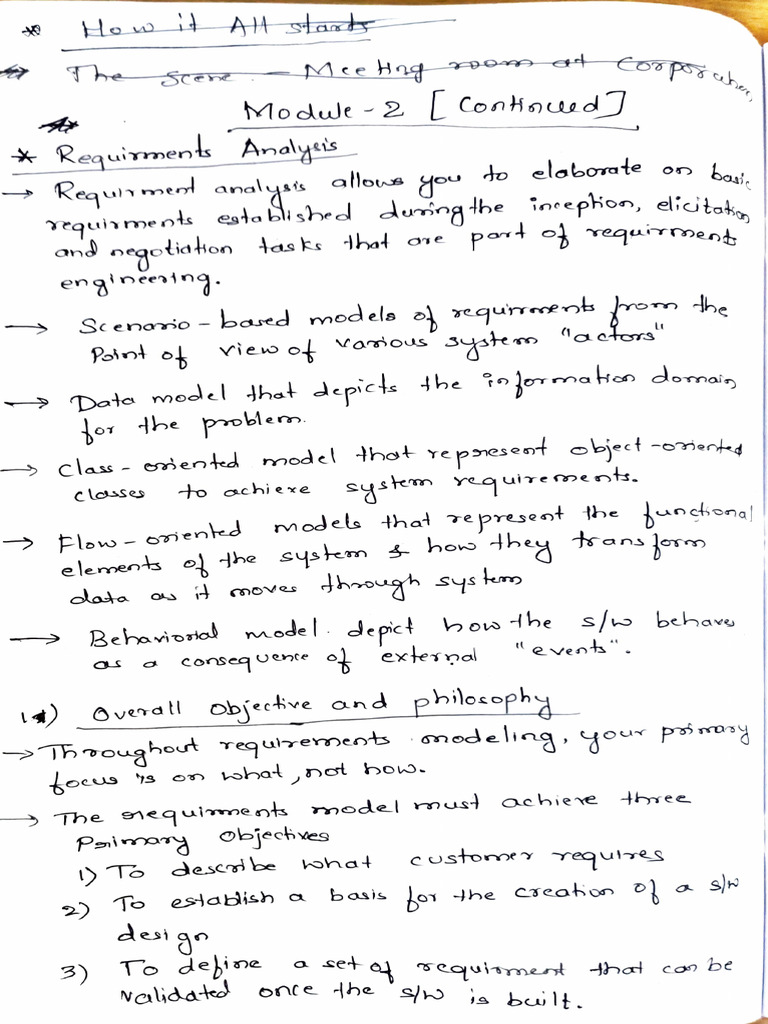 * How it All starts
→ The Scene - Meeting room at Corporation,
Module - 2 [Continued]
* Requirments Analysis
→ Requirment analysis allows you to elaborate on basic
requirments established during the inception, elicitation
and negotiation tasks that are part of requirment
engineering.
→ Scenario - based models of requirments from the
Point of view of various system "actors"
→ Data model that depicts the information domain
for the problem.
→ Class - oriented model that represent object - oriented
classes to achieve system requirements.
→ Flow - oriented models that represent the functional
elements of the system & how they transform
data as it moves through system
→ Behaviorial model depict how the s/w behave
as a consequence of external "events".
1) Overall Objective and philosophy
→ Throughout requirements modeling, your primary
focus is on what, not how.
→ The requirments model must achieve three
Primary Objectives
1) To describe what customer requires
2) To establish a basis for the creation of a s/w
design
3) To define a set of requirment that can be
validated once the s/w is built.